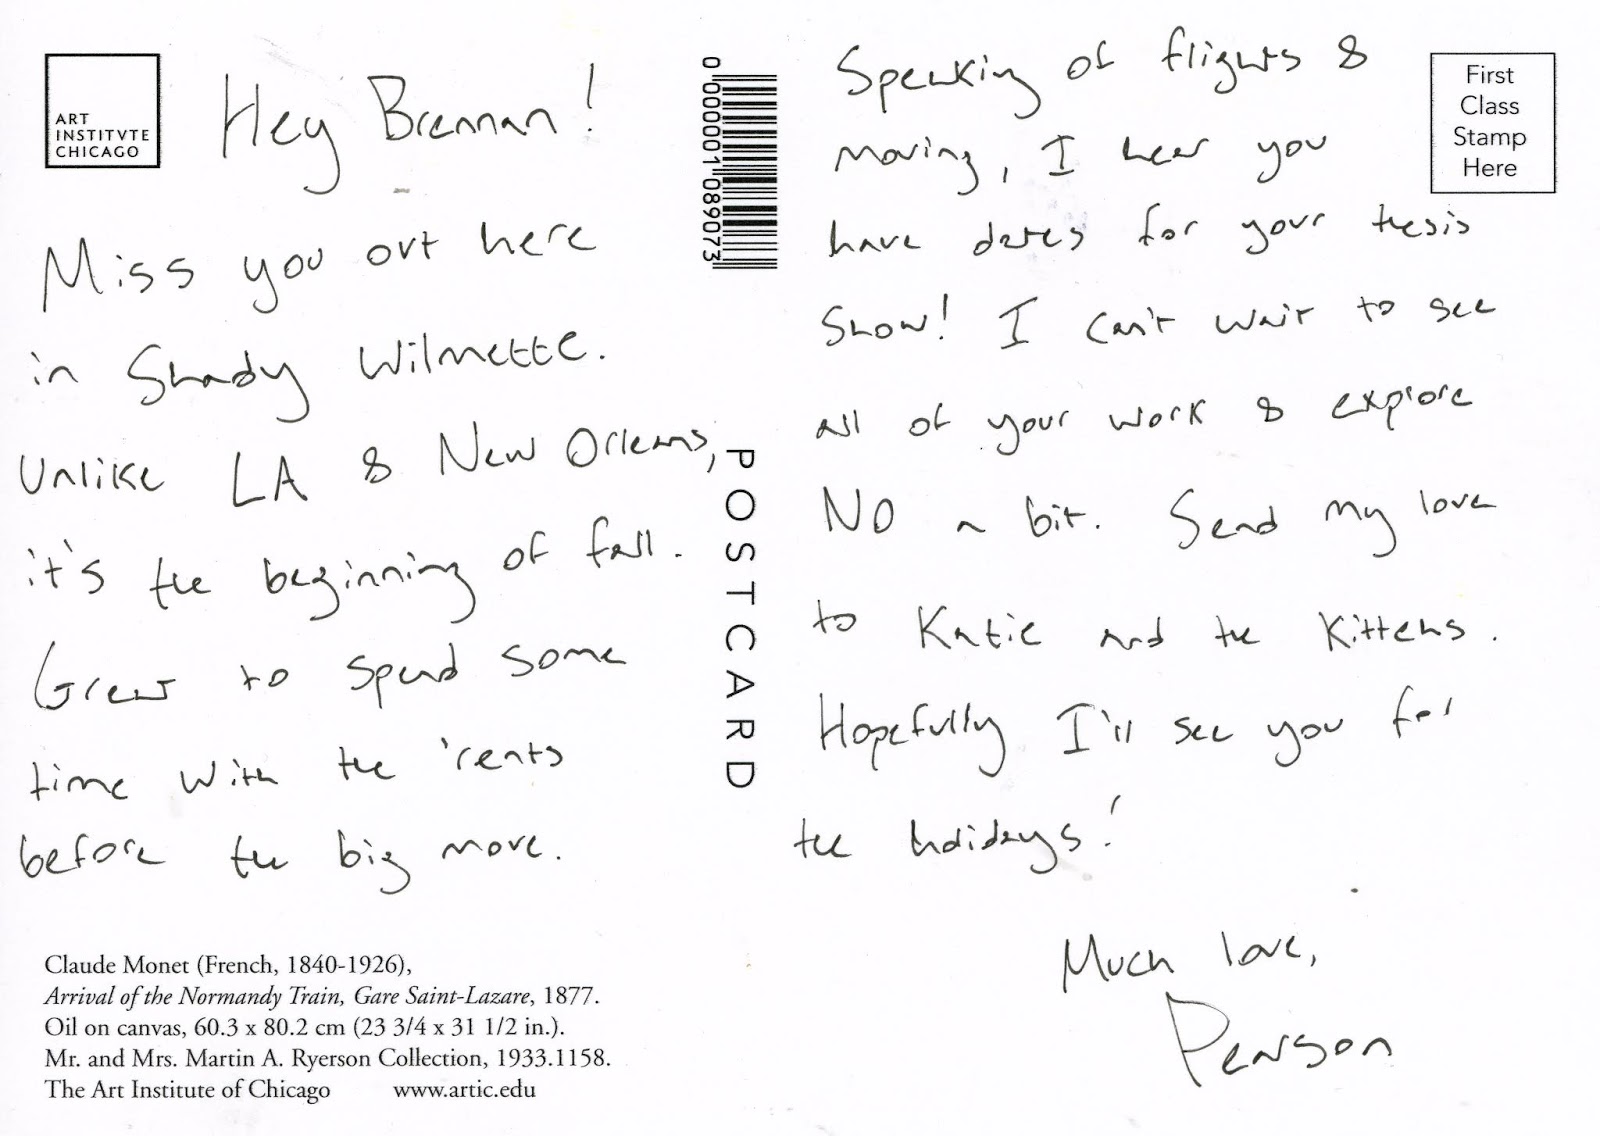 ART
INSTITVTE
CHICAGO
Hey Brennan!
Miss you out here
in Shady Wilmette.
Unlike LA & New Orleans,
it's the beginning of fall.
Great to spend some
time with the 'rents
before the big move.
Claude Monet (French, 1840-1926),
Arrival of the Normandy Train, Gare Saint-Lazare, 1877.
Oil on canvas, 60.3 x 80.2 cm (23 3/4 x 31 1/2 in.).
Mr. and Mrs. Martin A. Ryerson Collection, 1933.1158.
The Art Institute of Chicago www.artic.edu
0 000001 089073
POSTCARD
Speaking of flights &
moving, I hear you
have dates for your thesis
show! I can't wait to see
all of your work & explore
NO a bit. Send my love
to Katie and the Kittens.
Hopefully I'll see you for
the holidays!
Much love,
Pearson
First
Class
Stamp
Here